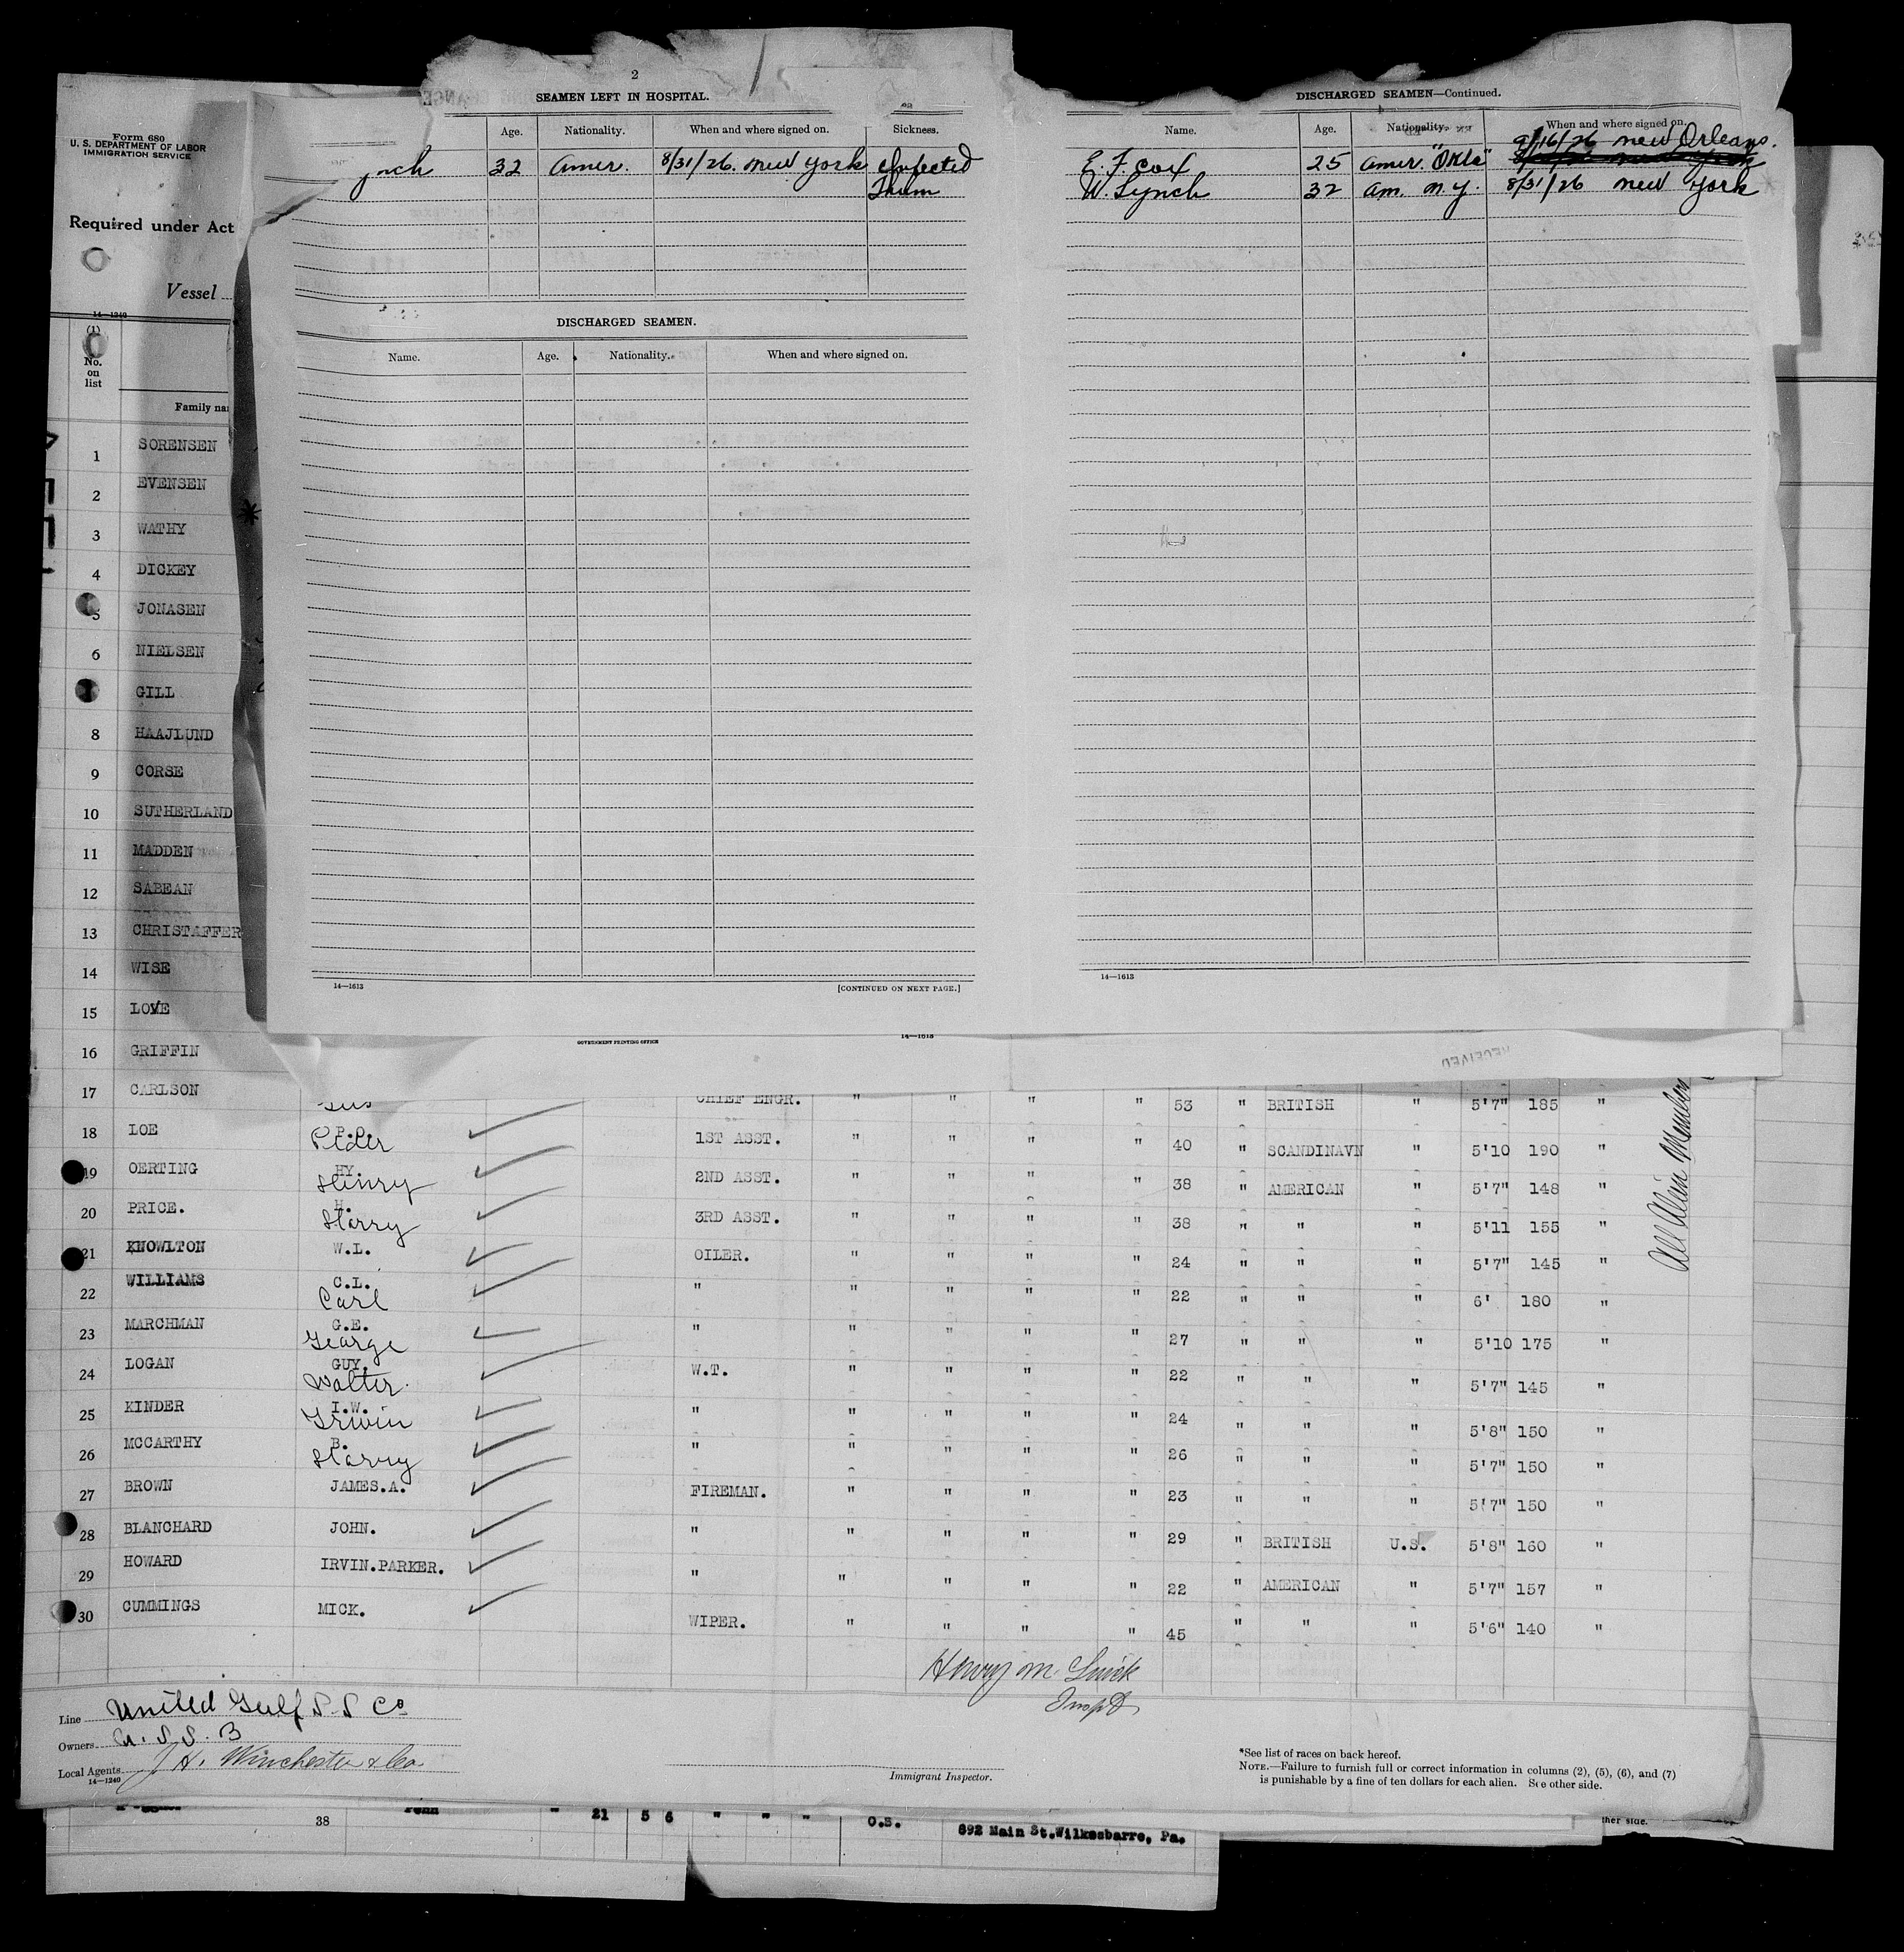 2
SEAMEN LEFT IN HOSPITAL.
Age. Nationality. When and where signed on. Sickness.
ynch 32 Amer. 8/31/26. New York Infected
Thum
DISCHARGED SEAMEN.
Name. Age. Nationality. When and where signed on.
14—1613 [CONTINUED ON NEXT PAGE.]
DISCHARGED SEAMEN—Continued.
Name. Age. Nationality. When and where signed on.
9/16/26 New Orleans.
E. F. Cox 25 Amer. "Okla"
W. Lynch 32 Am. N.Y. 8/31/26 New York
14—1613
Form 680
U. S. DEPARTMENT OF LABOR
IMMIGRATION SERVICE
Required under Act
Vessel
14—1240
(1)
No.
on
list
Family na
1 SORENSEN
2 EVENSEN
3 WATHY
4 DICKEY
5 JONASEN
6 NIELSEN
GILL
8 HAAJLUND
9 CORSE
10 SUTHERLAND
11 MADDEN
12 SABEAN
13 CHRISTAFFER
14 WISE
15 LOVE
16 GRIFFIN
GOVERNMENT PRINTING OFFICE 14—1613
RECEIVED
17 CARLSON Gus CHIEF ENGR. " " " " 53 " BRITISH " 5'7" 185 "
18 LOE P.O. Peder 1ST ASST. " " " " 40 " SCANDINAVN " 5'10 190 "
19 OERTING HY. Henry 2ND ASST. " " " " 38 " AMERICAN " 5'7" 148 "
20 PRICE. H. Harry 3RD ASST. " " " " 38 " " " 5'11 155 "
21 KNOWLTON W.L. OILER. " " " " 24 " " " 5'7" 145 "
22 WILLIAMS C.L. Carl " " " " " 22 " " " 6' 180 "
23 MARCHMAN G.E. George " " " " " 27 " " " 5'10 175 "
24 LOGAN GUY. Walter. W.T. " " " " 22 " " " 5'7" 145 "
25 KINDER I.W. Irwin " " " " " 24 " " " 5'8" 150 "
26 MCCARTHY B. Harry " " " " " 26 " " " 5'7" 150 "
27 BROWN JAMES.A. FIREMAN. " " " " 23 " " " 5'7" 150 "
28 BLANCHARD JOHN. " " " " " 29 " BRITISH U.S. 5'8" 160 "
29 HOWARD IRVIN.PARKER. " " " " " 22 " AMERICAN " 5'7" 157 "
30 CUMMINGS MICK. WIPER. " " " " 45 " " " 5'6" 140 "
All Alien Members
Line United Gulf S.S Co
Owners U. S. S. B
Local Agents J. H. Winchester & Co.
14—1240
Immigrant Inspector.
*See list of races on back hereof.
NOTE.—Failure to furnish full or correct information in columns (2), (5), (6), and (7)
is punishable by a fine of ten dollars for each alien. See other side.
38 Penn " 21 5 6 " " " O.S. 892 Main St.Wilkesbarre, Pa.
ther side.